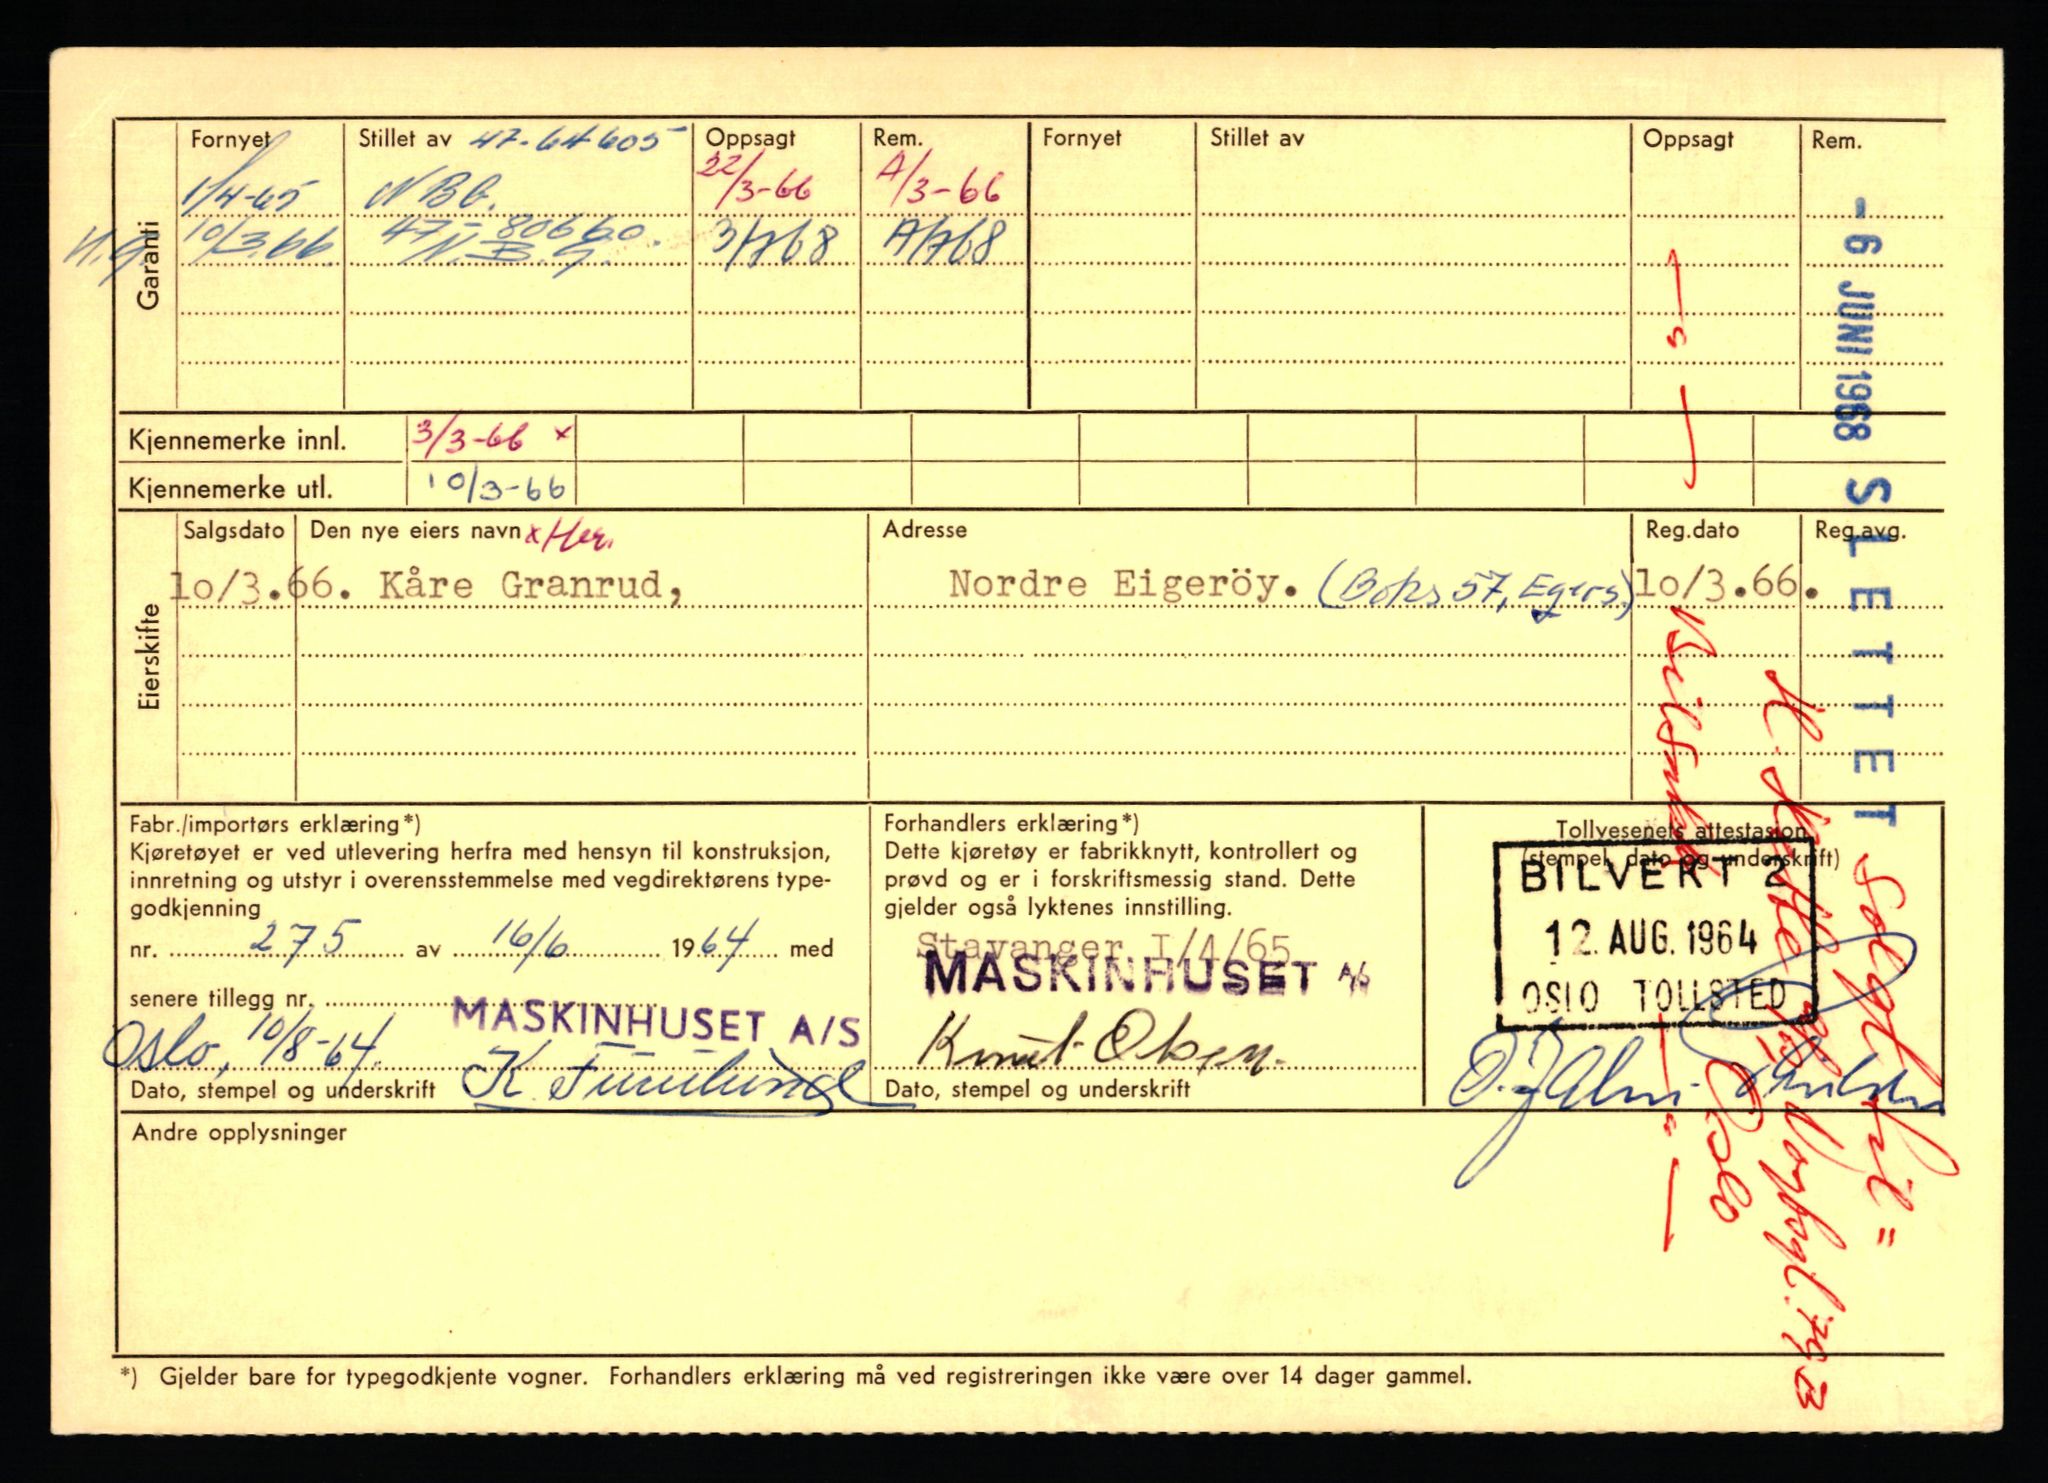 Garanti
Fornyet Stillet av 47-64605 Oppsagt Rem. Fornyet Stillet av Oppsagt Rem.
1/4-65 NBG. 22/3-66 A/3-66
N.G. 10/3.66. 47-80660. N.B.G. 3/768 A/768
- 6 JUNI 1968 SLETTET
Kjennemerke innl. 3/3-66 x
Kjennemerke utl. 10/3-66
Eierskifte
Salgsdato Den nye eiers navn x Her. Adresse Reg.dato Reg.avg.
10/3.66. Kåre Granrud, Nordre Eigeröy. (Boks 57, Egers.) 10/3.66.
Solgt til =
Oslo
Fabr./importørs erklæring*)
Kjøretøyet er ved utlevering herfra med hensyn til konstruksjon,
innretning og utstyr i overensstemmelse med vegdirektørens type-
godkjenning
nr. 275 av 16/6 1964 med
senere tillegg nr.
MASKINHUSET A/S
Oslo, 10/8-64. K. Furulund
Dato, stempel og underskrift
Forhandlers erklæring*)
Dette kjøretøy er fabrikknytt, kontrollert og
prøvd og er i forskriftsmessig stand. Dette
gjelder også lyktenes innstilling.
Stavanger I/4/65
MASKINHUSET A/S
Knut Olsen.
Dato, stempel og underskrift
Tollvesenets attestasjon
(stempel, dato og underskrift)
BILVEKT 2
12. AUG. 1964
OSLO TOLLSTED
Andre opplysninger
*) Gjelder bare for typegodkjente vogner. Forhandlers erklæring må ved registreringen ikke være over 14 dager gammel.